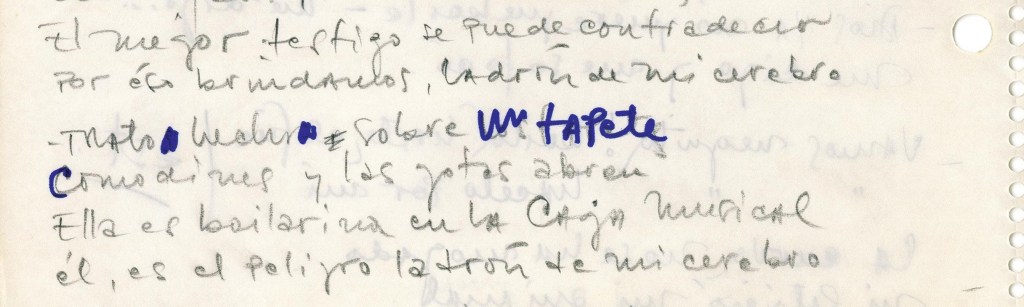 El mejor testigo se puede contradecir
Por éso brindamos, ladrón de mi cerebro
- Trato hecho sobre un tapete
Comodines y las gotas abren
Ella es bailarina en la Caja Musical
él, es el Peligro ladrón de mi cerebro